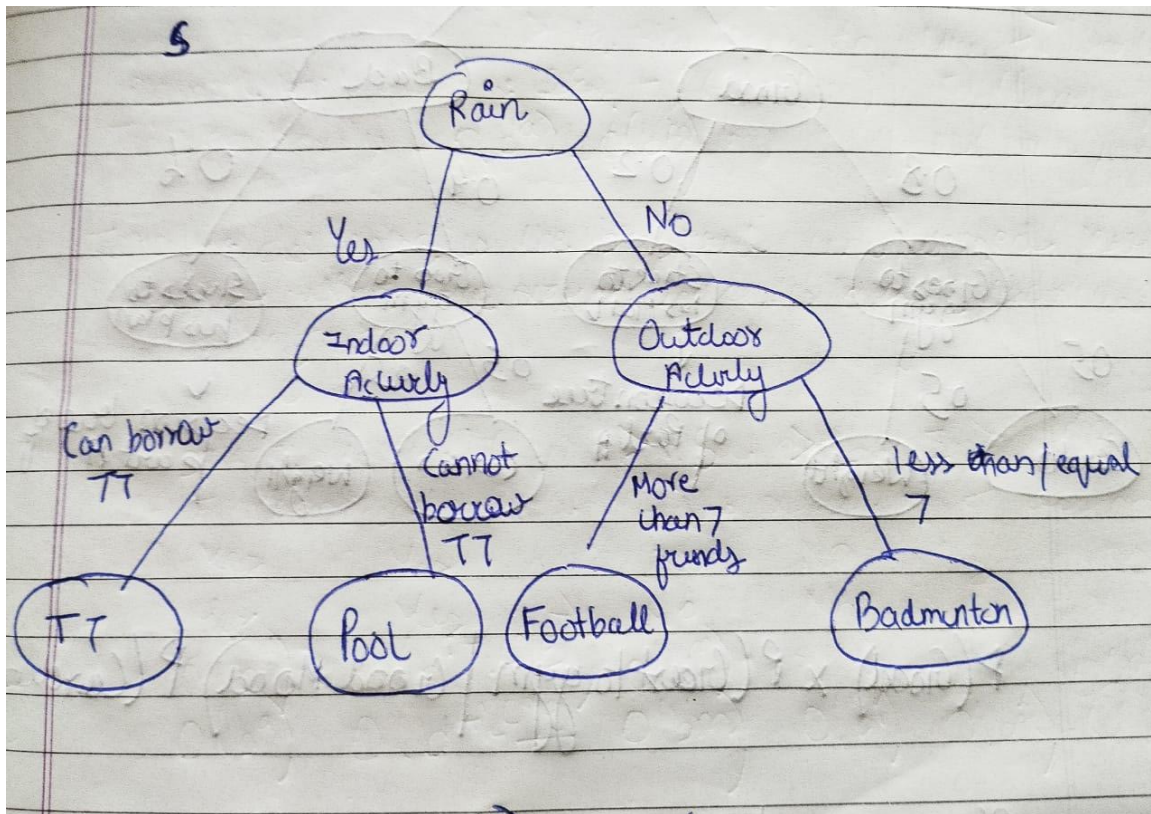 5
Rain
Yes
No
Indoor
Activity
Outdoor
Activity
Can borrow
TT
Cannot
borrow
TT
More
than 7
friends
less than/equal
7
TT
Pool
Football
Badminton